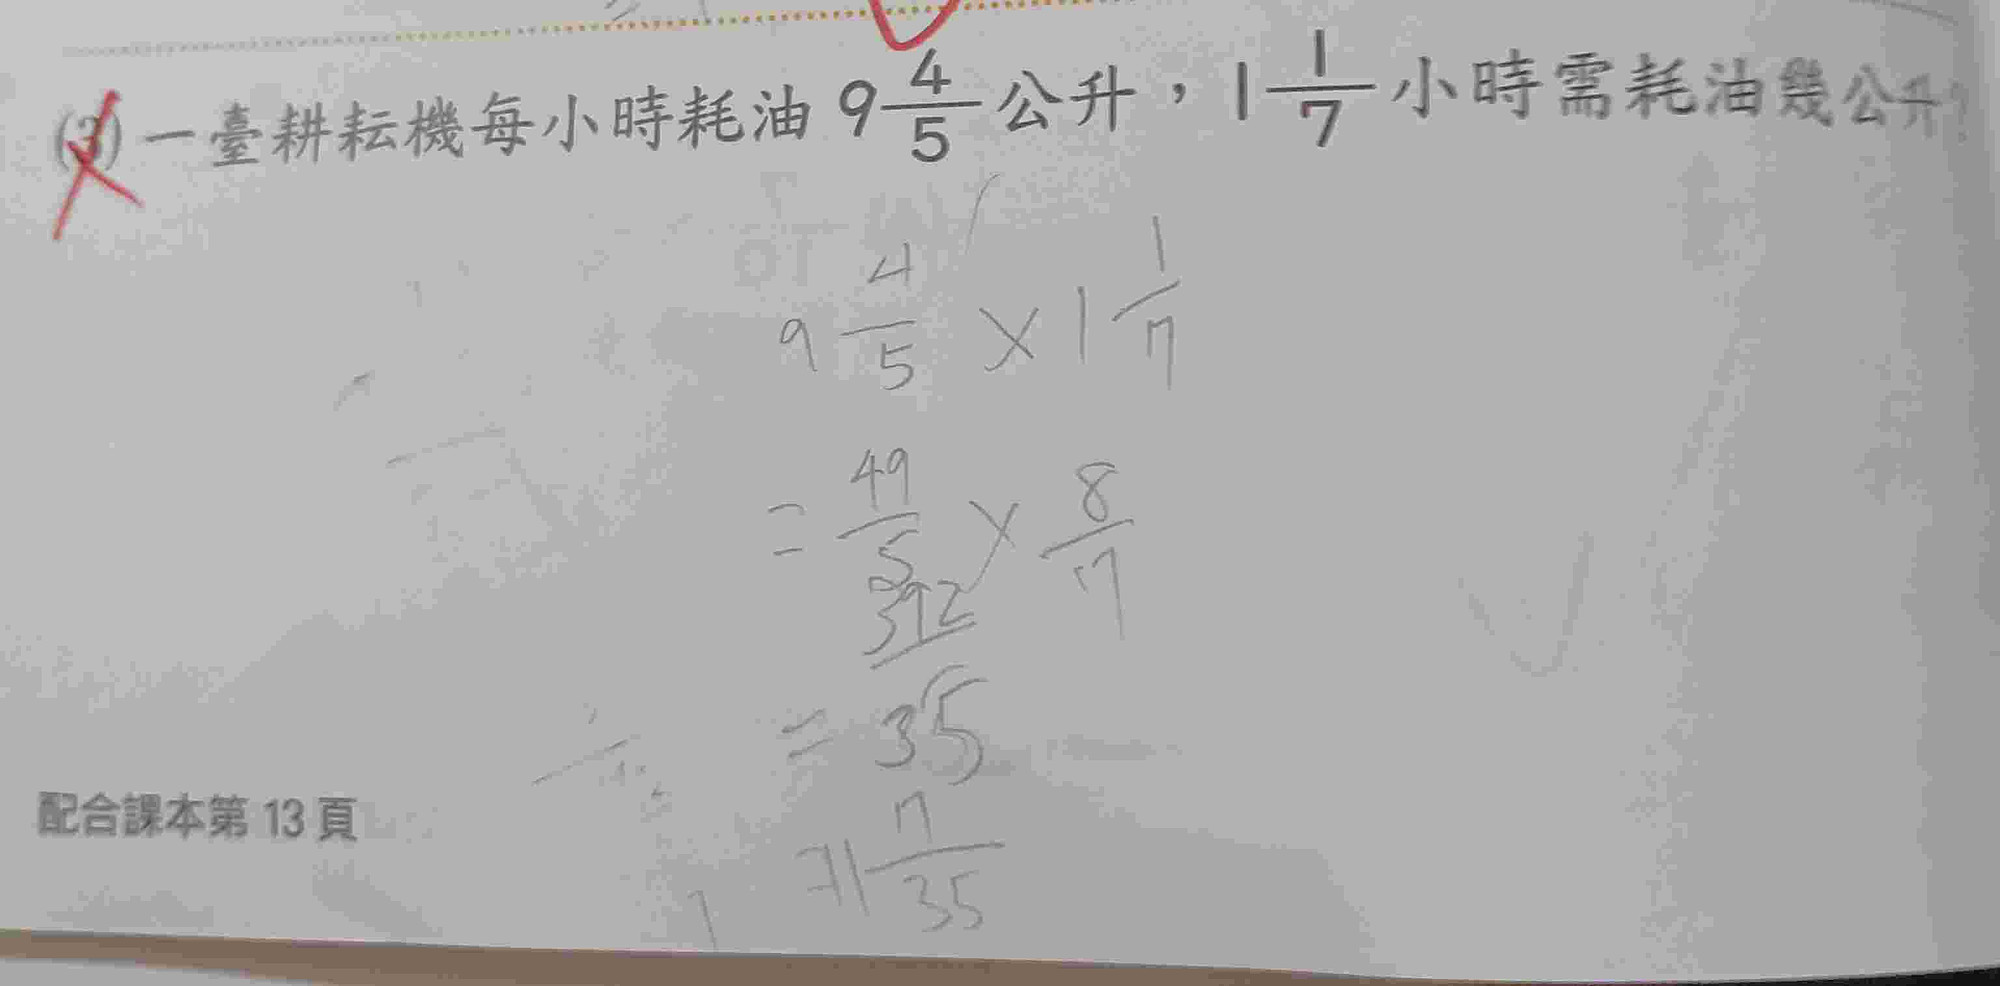 (3) 一臺耕耘機每小時耗油 9 4/5 公升，1 1/7 小時需耗油幾公升？
9 4/5 × 1 1/7
= 49/5 × 8/7
= 392/35
= 11 7/35
配合課本第 13 頁